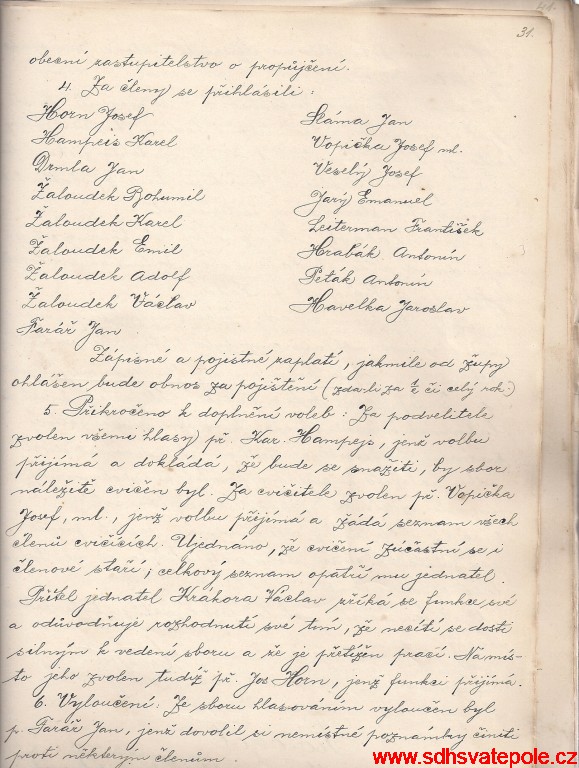 31.
obecní zastupitelstvo o propůjčení.
4. Za členy se přihlásili:
Horn Josef
Hampeis Karel
Drmla Jan
Žaloudek Bohumil
Žaloudek Karel
Žaloudek Emil
Žaloudek Adolf
Žaloudek Václav
Farář Jan
Sláma Jan
Vopička Josef ml.
Veselý Josef
Jarý Emanuel
Leiterman František
Hrabák Antonín
Peták Antonín
Havelka Jaroslav
Zápisné a pojistné zaplatí, jakmile od župy
ohlášen bude obnos za pojištění (zda-li za ½ či celý rok.)
5. Přikročeno k doplnění voleb: Za podvelitele
zvolen všemi hlasy př. Kar. Hampejs, jenž volbu
přijímá a dokládá, že bude se snažiti, by sbor
náležitě cvičen byl. Za cvičitele zvolen př. Vopička
Josef, ml., jenž volbu přijímá a žádá seznam všech
členů cvičících. Ujednáno, že cvičení zúčastní se i
členové staří; celkový seznam opatří mu jednatel.
Přítel jednatel Krákora Václav zříká se funkce své
a odůvodňuje rozhodnutí své tím, že necítí se dosti
silným k vedení sboru a že je přetížen prací. Na mís-
to jeho zvolen tudíž př. Jos Horn, jenž funkci přijímá.
6. Vyloučení: Ze sboru hlasováním vyloučen byl
p. Farář Jan, jenž dovolil si nemístné poznámky činiti
proti některým členům.
www.sdhsvatepole.cz